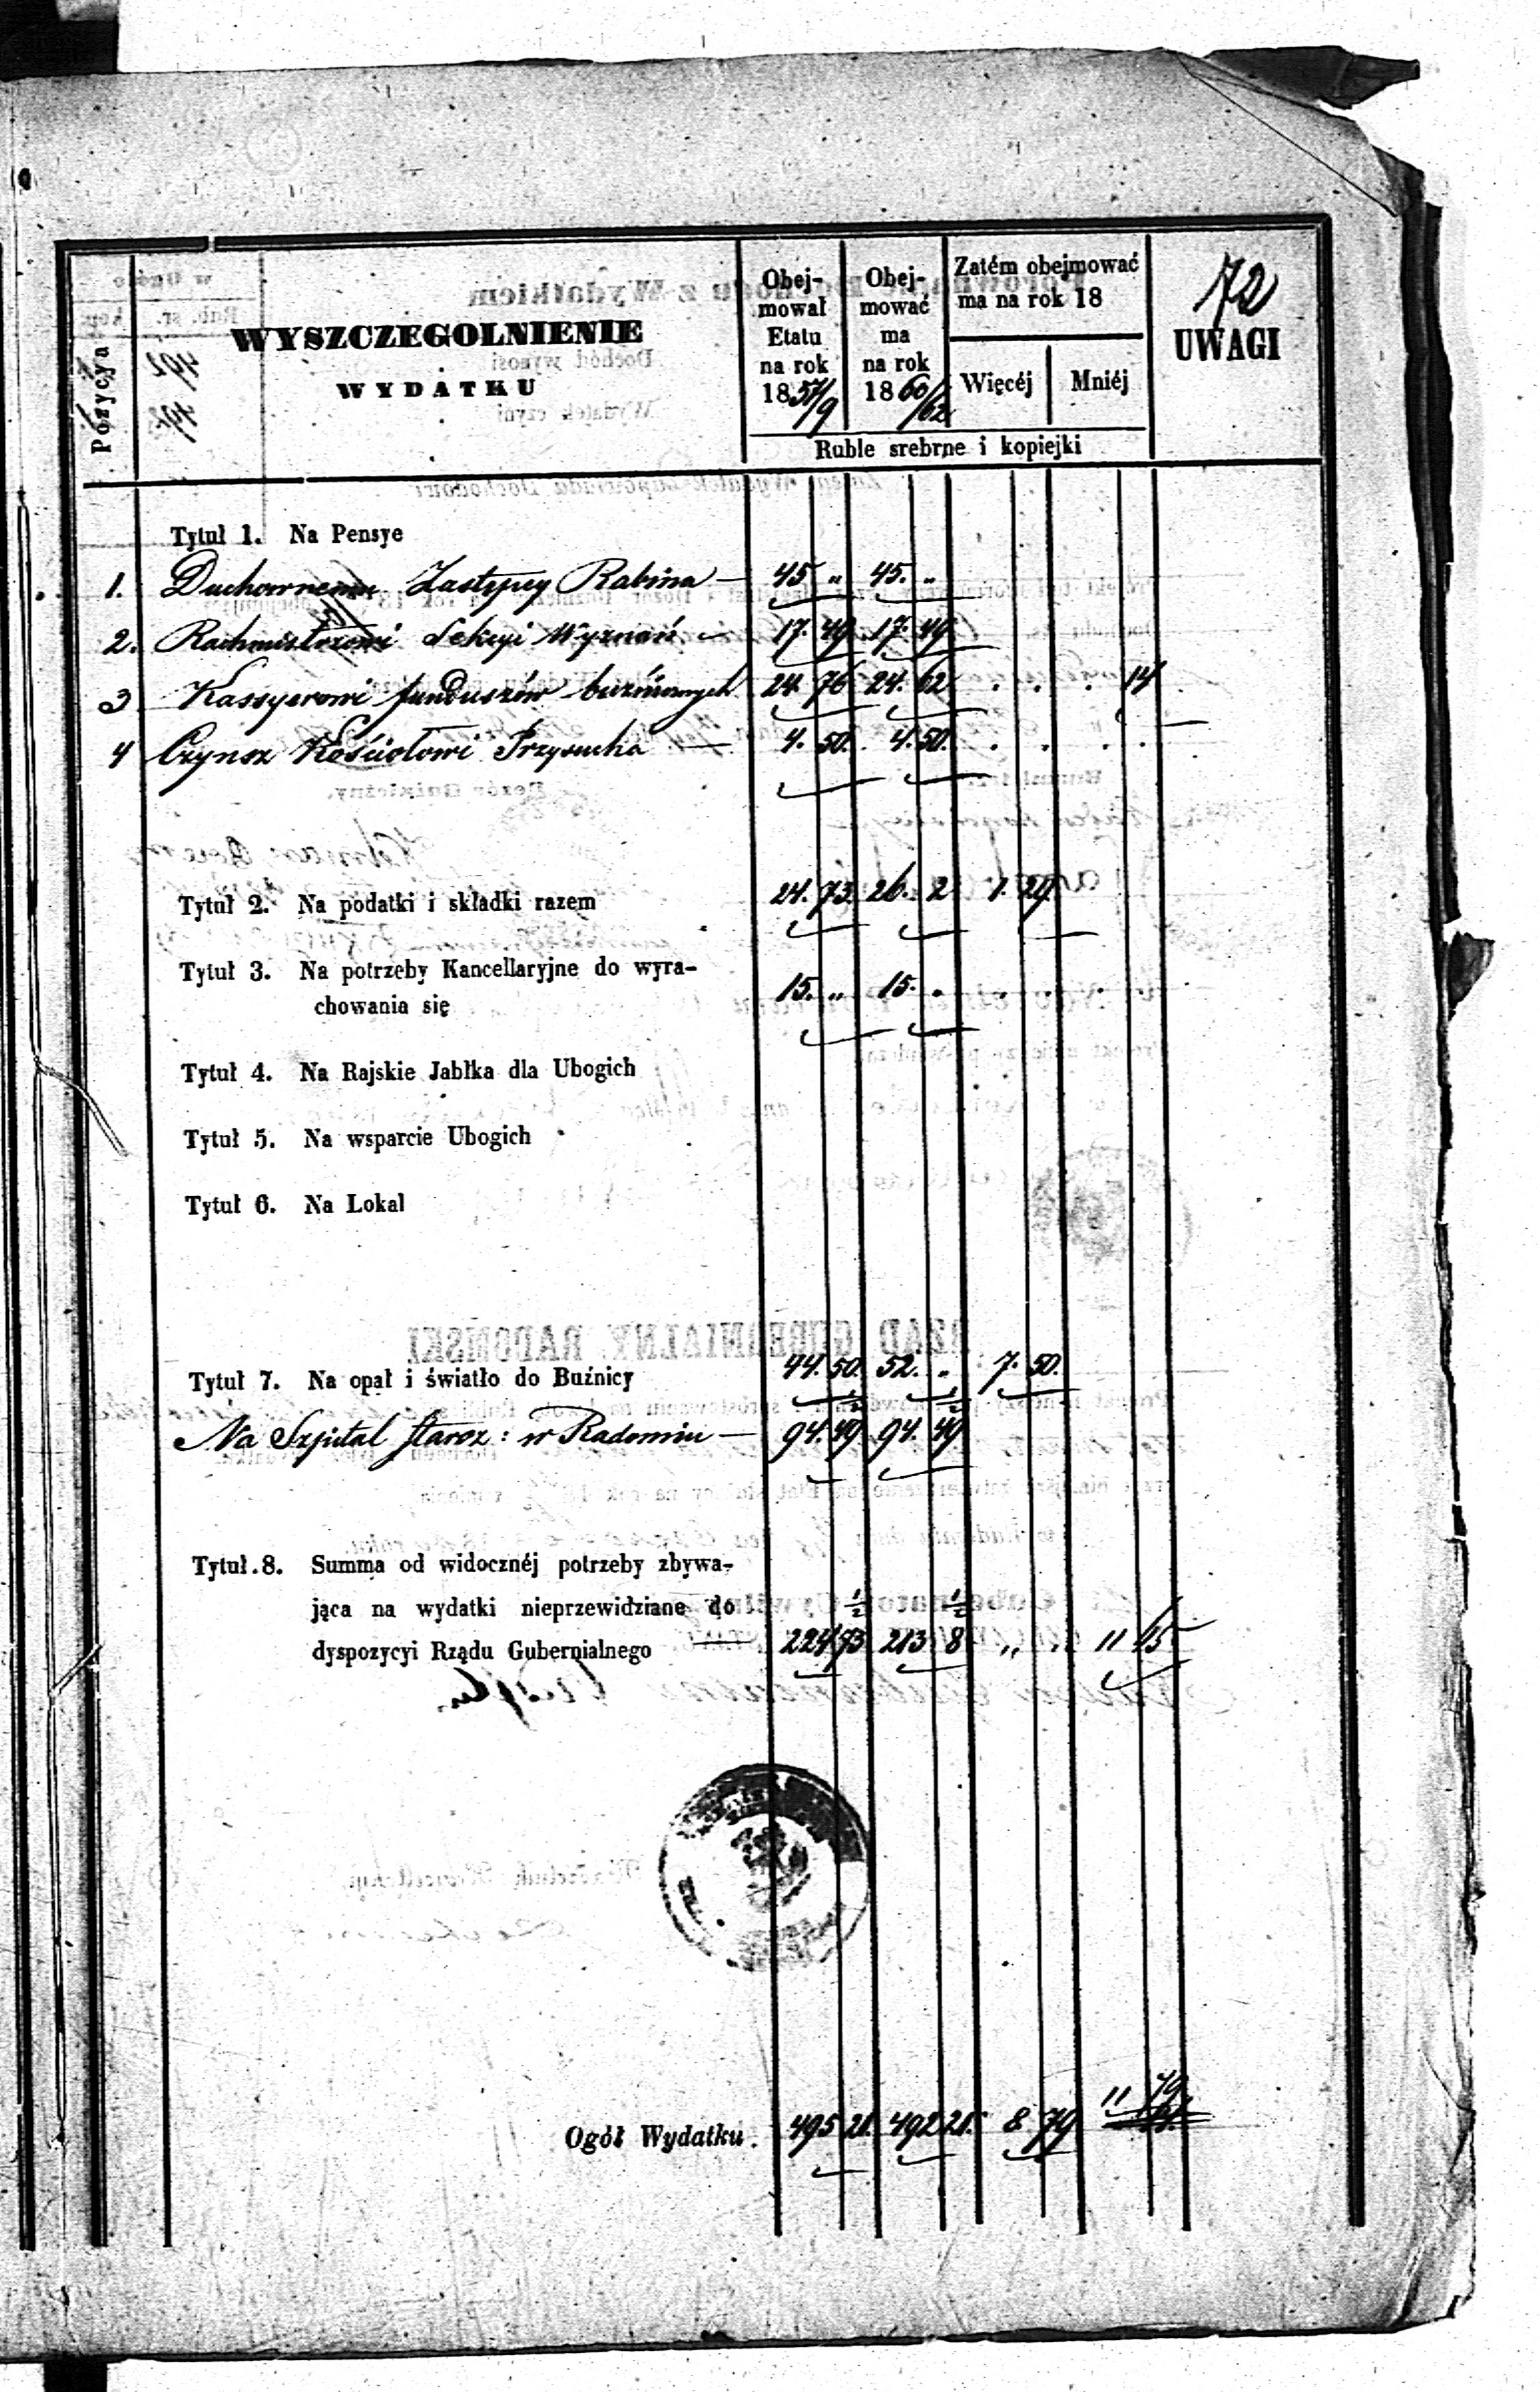 72
Pozycya
WYSZCZEGOLNIENIE
WYDATKU
Obej-
mował
Etatu
na rok
1857/9
Obej-
mować
ma
na rok
1860/62
Zatém obejmować
ma na rok 18
Więcéj Mniéj
UWAGI
Ruble srebrne i kopiejki
Tytuł 1. Na Pensye
1. Duchownemu Zastępcy Rabina — 45 „ 45. „
2. Rachmistrzowi Sekcyi Wyznań — 17. 49 17. 49
3 Kassyerowi funduszów bużniczych 24. 76 24. 62 . . . 14
4 Czynsz Kościołowi Przysucha — 4. 50. 4. 50. . . . .
Tytuł 2. Na podatki i składki razem 24. 73 26. 2 1. 29.
Tytuł 3. Na potrzeby Kancellaryjne do wyra-
chowania się 15. „ 15. . . . .
Tytuł 4. Na Rajskie Jabłka dla Ubogich
Tytuł 5. Na wsparcie Ubogich
Tytuł 6. Na Lokal
Tytuł 7. Na opał i światło do Buźnicy 44. 50. 52. „ 7. 50.
Na Szpital staroz: w Radomiu — 94. 49 ½ 94. 49 ½
Tytuł 8. Summa od widocznéj potrzeby zbywa-
jąca na wydatki nieprzewidziane do
dyspozycyi Rządu Gubernialnego — 224 73 ½ 213 8 ½ „ „ 11 65
Ogół Wydatku. 495 21. 492 21. 8 79 11 79